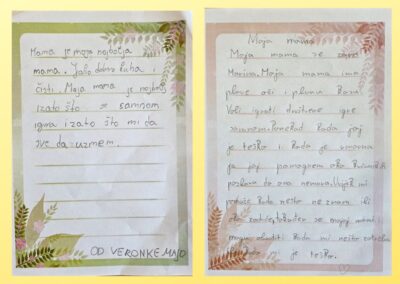 Mama je moja najbolja
mama. Jako dobro kuha i
čisti. Moja mama je najbolja
i zato što se samnom
igra i zato što mi da
sve da uzmem.
OD VERONKE MAJD
Moja mama
Moja mama se zove
Marina. Moja mama ima
plave oči i plavu kosu.
Voli igrati društvene igre
samnom. Ponekad kada joj
je teško i kada je umorna
ja joj pomognem oko kućanskih
poslova da ona nemora. Uvijek mi
pomože kada nešto ne znam ili
mojoj mami
mogu kada mi nešto
je teško.